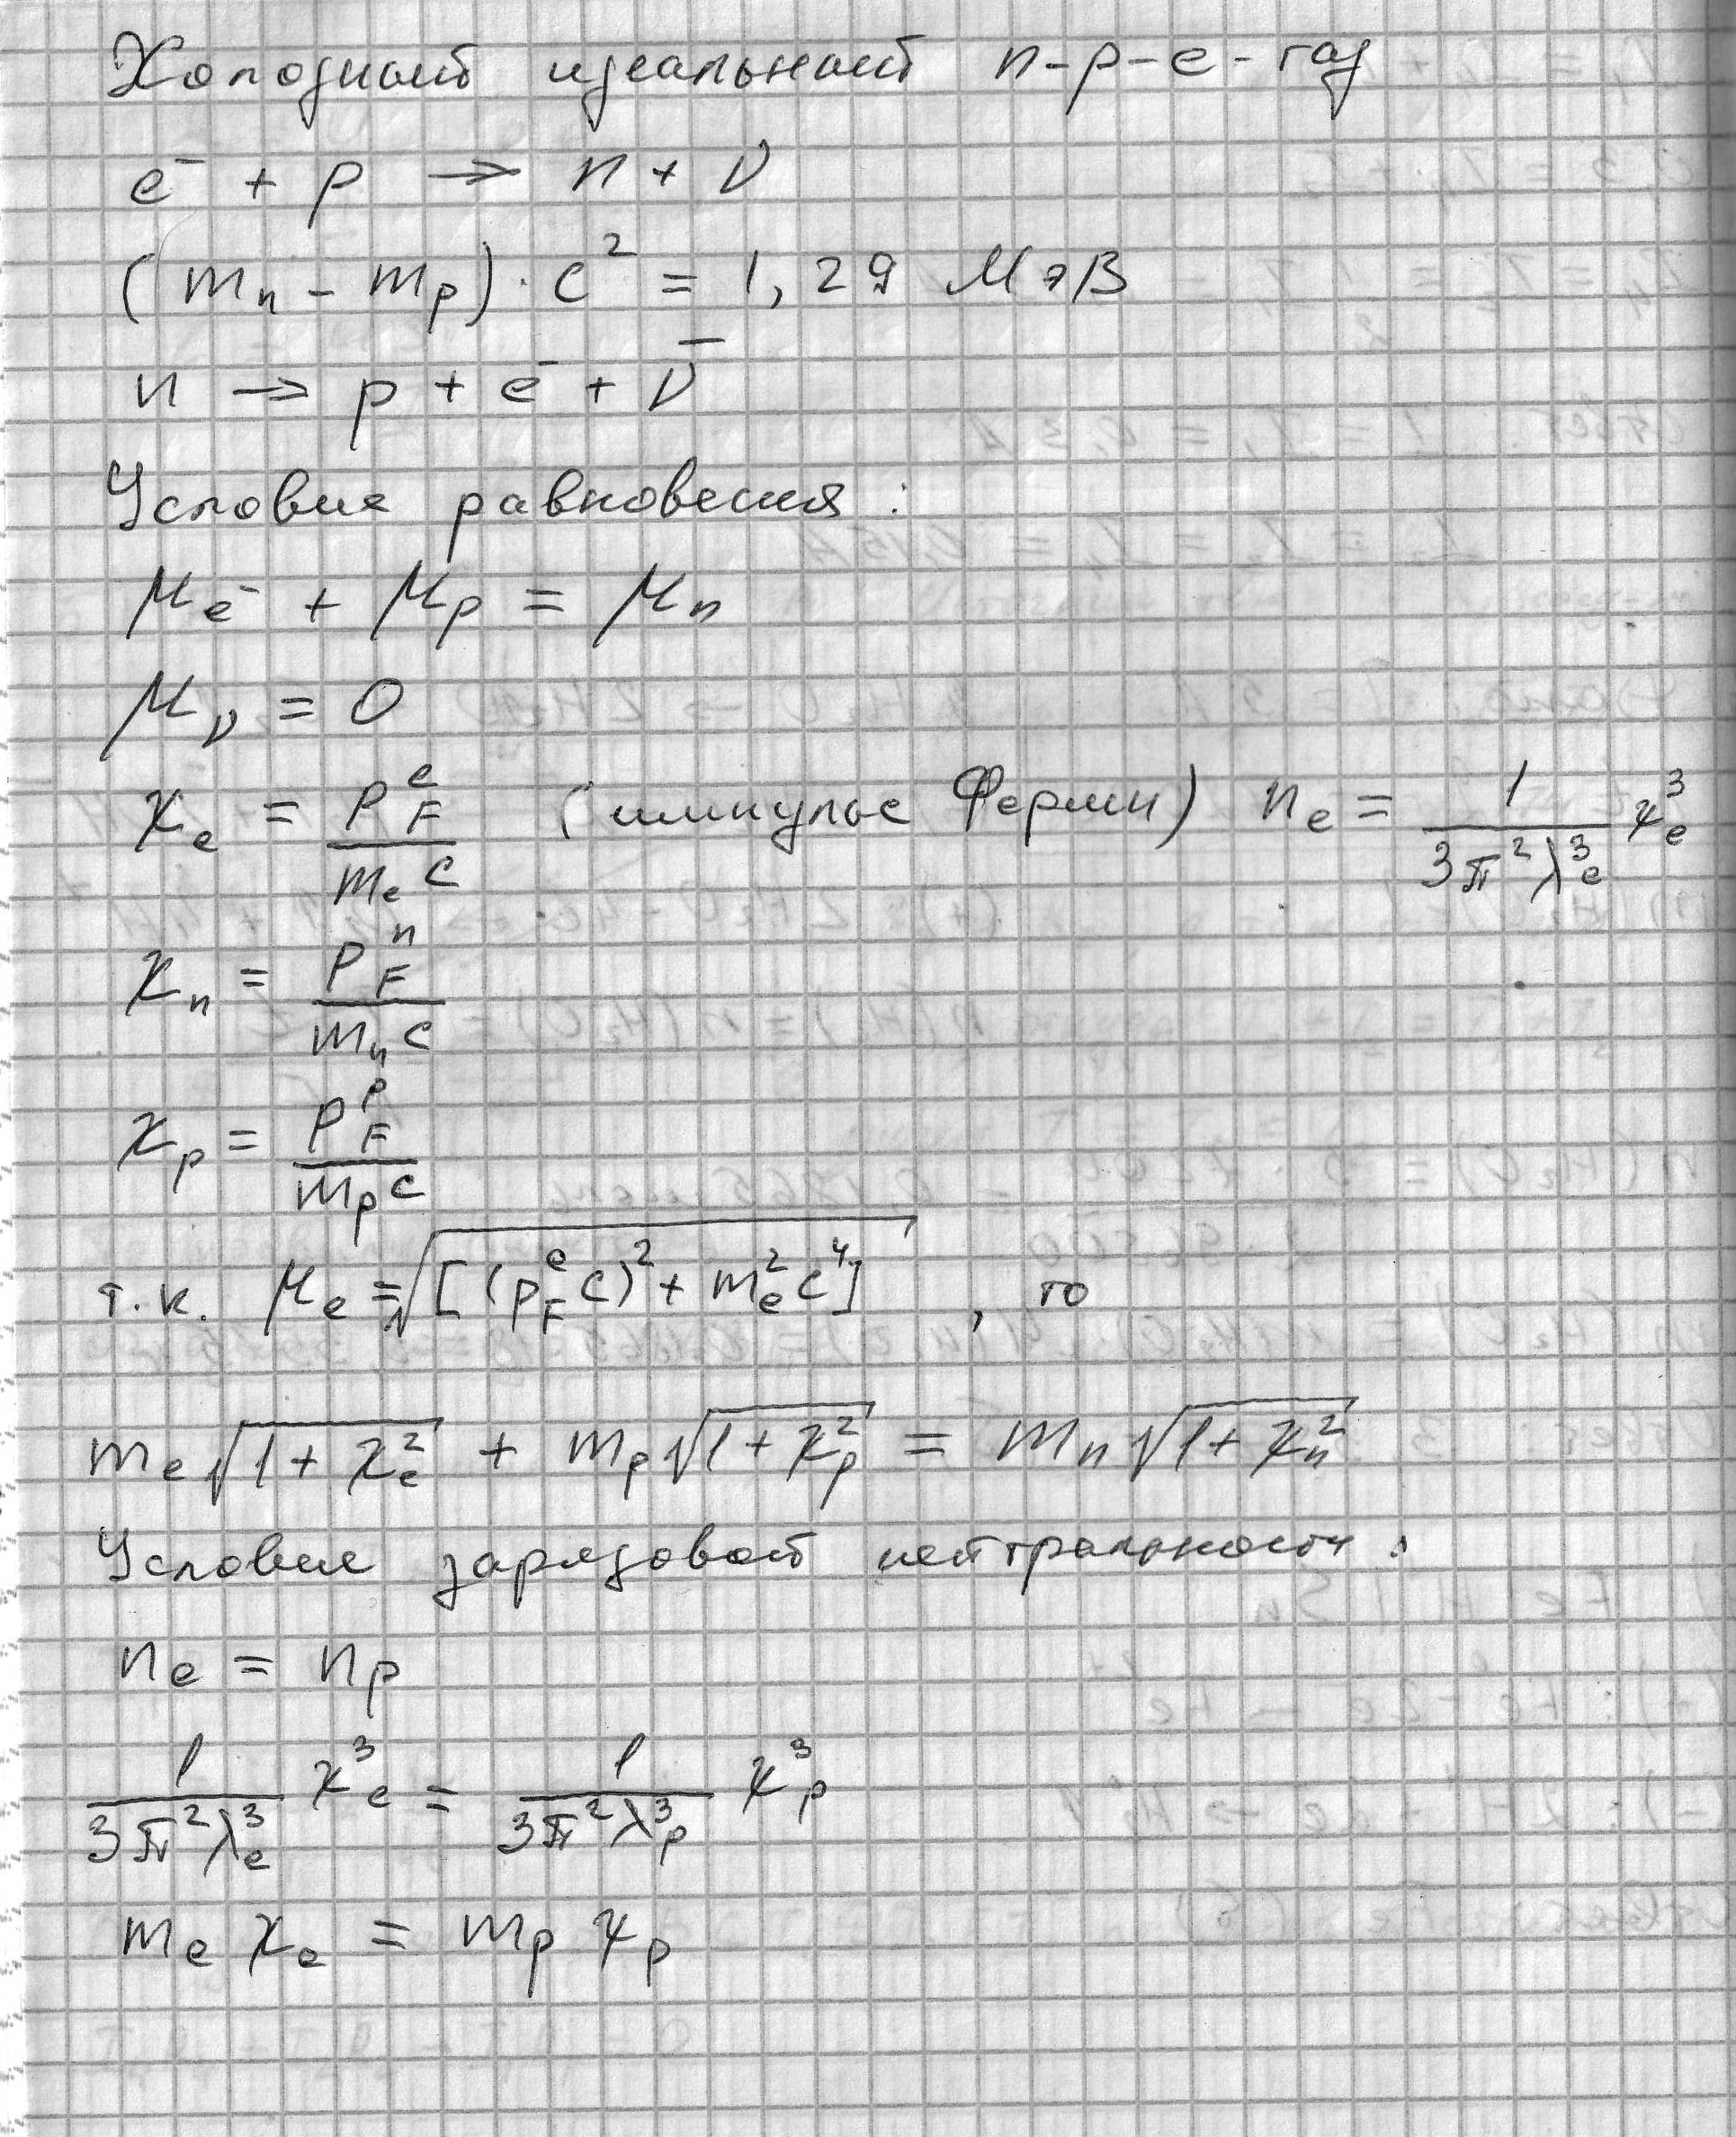 Холодный идеальный n-p-e-газ
e⁻ + p → n + ν
(mₙ - mₚ) · c² = 1,29 МэВ
n → p + e⁻ + ν̄
Условие равновесия:
μₑ⁻ + μₚ = μₙ
μ_ν = 0
xₑ = p_F^e / (mₑ c) (импульс Ферми) nₑ = 1 / (3π²λₑ³) xₑ³
xₙ = p_F^n / (mₙ c)
xₚ = p_F^p / (mₚ c)
т.к. μₑ = √([(p_F^e c)² + mₑ² c⁴]) , то
mₑ √(1 + xₑ²) + mₚ √(1 + xₚ²) = mₙ √(1 + xₙ²)
Условие зарядовой нейтральности:
nₑ = nₚ
1 / (3π²λₑ³) xₑ³ = 1 / (3π²λₚ³) xₚ³
mₑ xₑ = mₚ xₚ